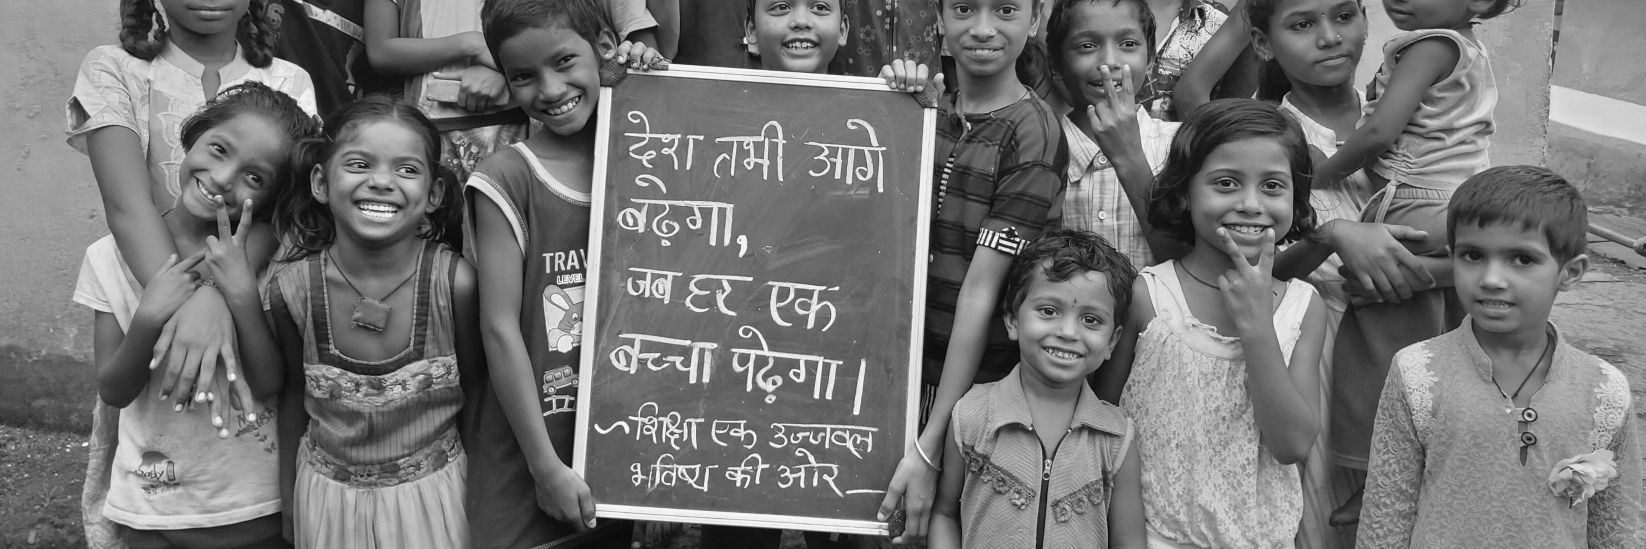 देश तभी आगे
बढ़ेगा,
जब हर एक
बच्चा पढ़ेगा।
~शिक्षा एक उज्जवल
भविष्य की ओर_
TRAV
LEVEL